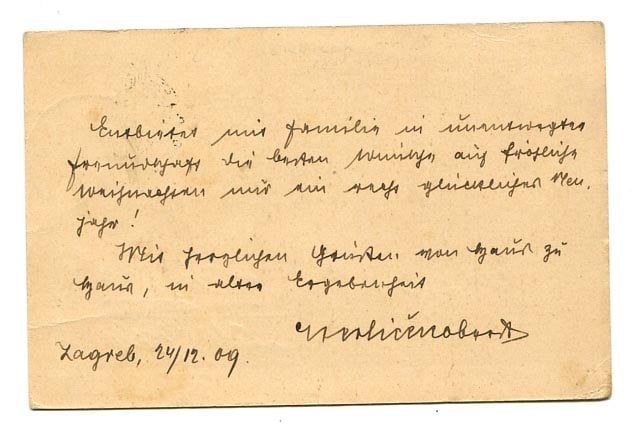 Entbietet mit Familie in unentwegter
Freundschaft die besten Wünsche auf fröhliche
Weihnachten und ein recht glückliches Neu-
jahr!
Mit herzlichen Grüßen von Haus zu
Haus, in alter Ergebenheit
Zagreb, 24/12. 09.